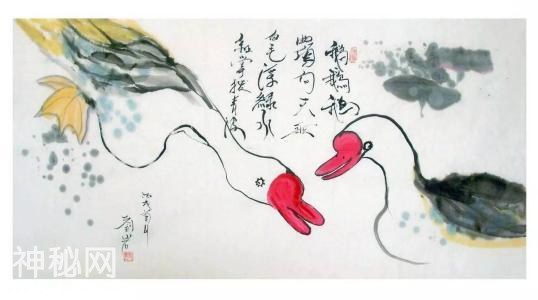 鹅鹅鹅
曲项向天歌
白毛浮绿水
红掌拨清波
神秘网